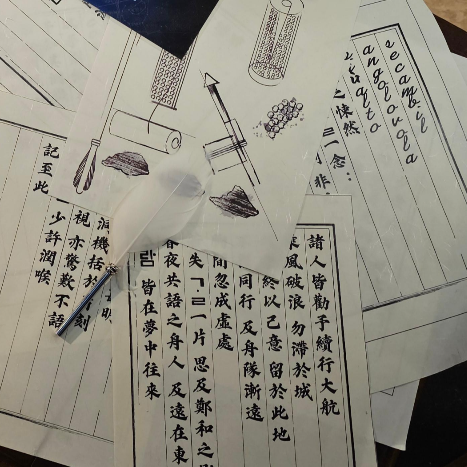 secambil
angolovola
悚然
一念
非
諸人皆勸手續行大航
風破浪 勿滯於城
終以己意留於此地
同行 及舟隊漸遠
間忽成虛處
失ㄱㄹ一片 思及鄭和之
夜共語之舟人 及遠在東
皆在夢中往來
機括於
刻
視亦驚歎不語
少許潤喉
記至此